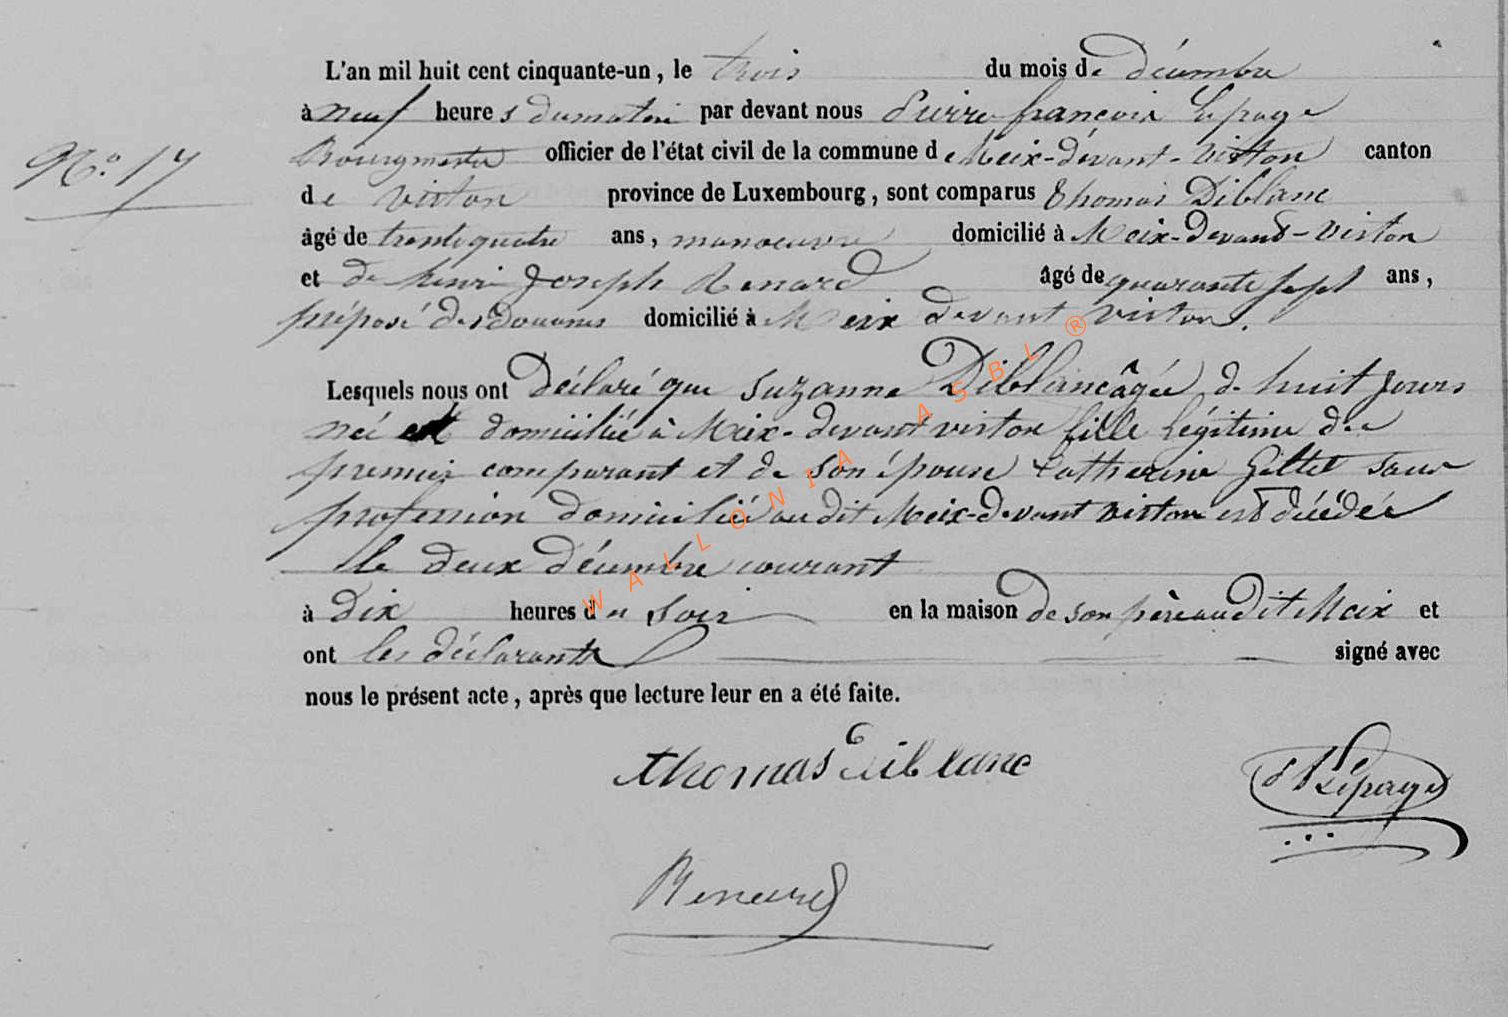 L'an mil huit cent cinquante-un, le trois du mois de décembre
à neuf heures du matin par devant nous Pierre françois Lepage
N.° 17
Bourgmestre officier de l'état civil de la commune de Meix-devant-virton canton
de virton province de Luxembourg, sont comparus thomas Diblanc
âgé de trente quatre ans, manoeuvre domicilié à Meix-devant-virton
et de henri Joseph Renard âgé de quarante sept ans,
préposé des douanes domicilié à Meix devant virton.
Lesquels nous ont déclaré que suzanne Diblanc âgée de huit jours
née et domiciliée à Meix-devant virton fille légitime de
premier comparant et de son épouse Catherine Gillet sans
profession domiciliée audit Meix-devant virton est décédée
le deux décembre courant
à dix heures du soir en la maison de son père audit Meix et
ont les déclarants signé avec
nous le présent acte, après que lecture leur en a été faite.
thomas diblanc
Lepage
Renard
WALLONIA ASBL ®